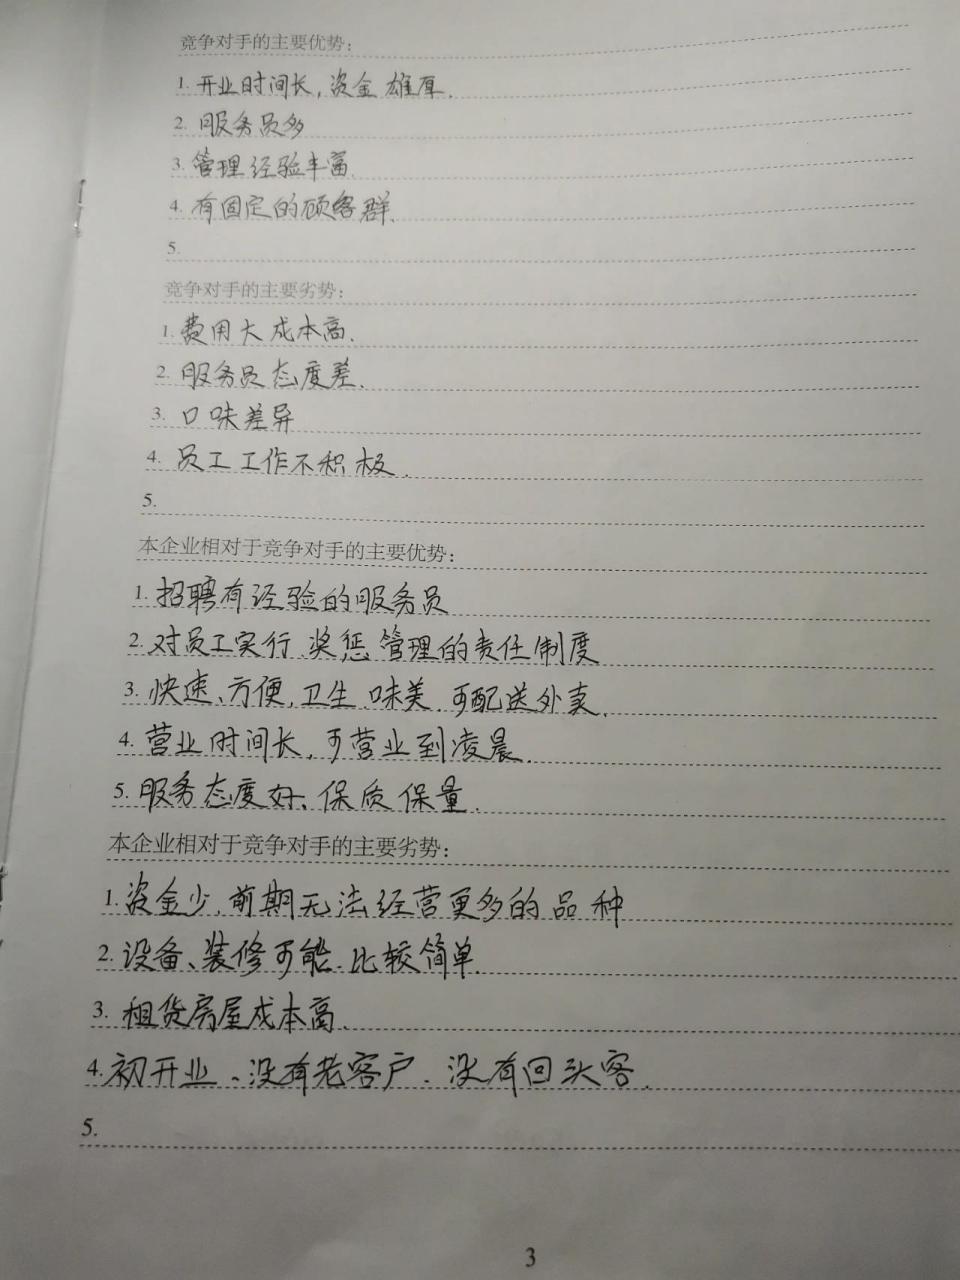 竞争对手的主要优势：
1. 开业时间长，资金雄厚.
2. 服务员多
3. 管理经验丰富.
4. 有固定的顾客群.
5.
竞争对手的主要劣势：
1. 费用大成本高.
2. 服务员态度差.
3. 口味差异
4. 员工工作不积极.
5.
本企业相对于竞争对手的主要优势：
1. 招聘有经验的服务员
2. 对员工实行奖惩管理的责任制度
3. 快速、方便，卫生.味美.可配送外卖.
4. 营业时间长，可营业到凌晨.
5. 服务态度好、保质保量.
本企业相对于竞争对手的主要劣势：
1. 资金少.前期无法经营更多的品种
2. 设备、装修可能.比较简单.
3. 租赁房屋成本高.
4. 初开业、没有老客户.没有回头客.
5.
3